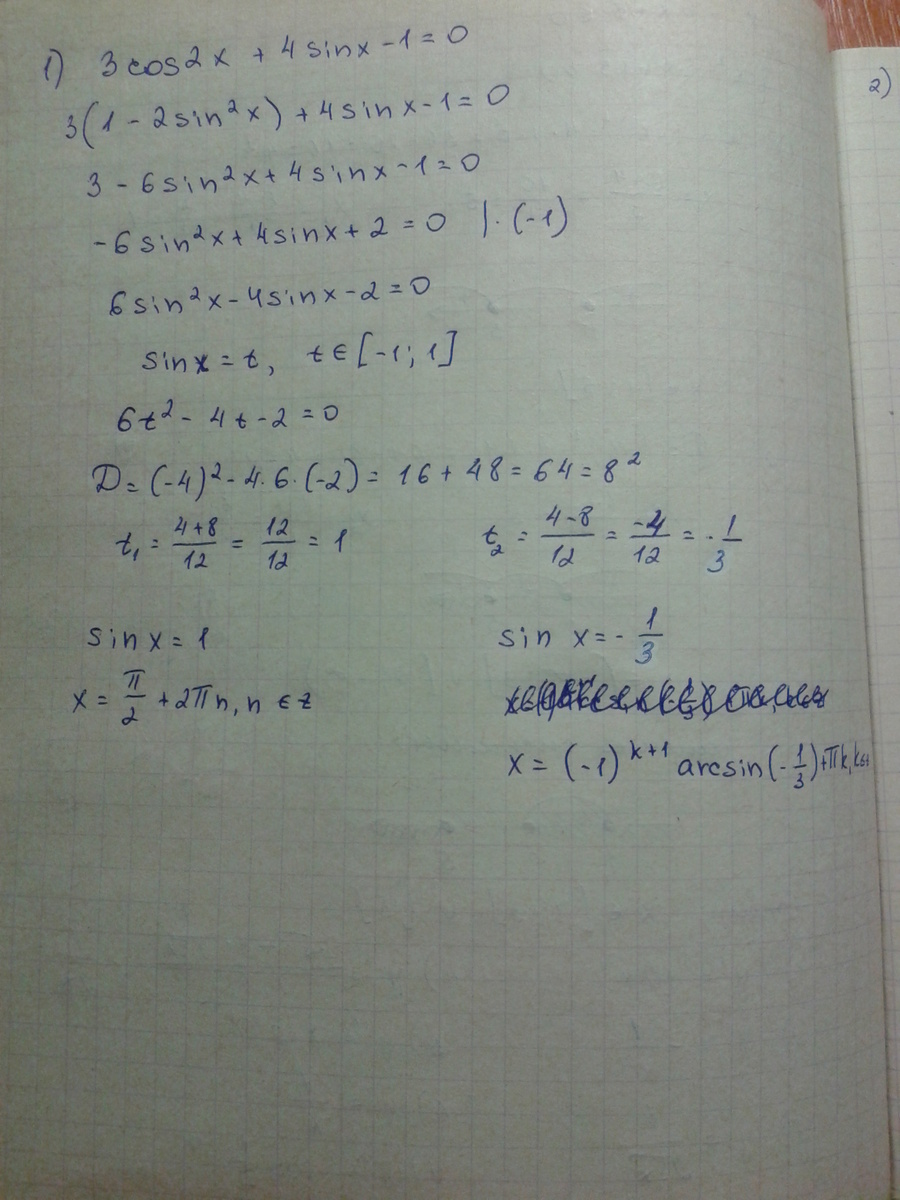 1) 3cos2x + 4sinx - 1 = 0
2)
3(1 - 2sin²x) + 4sinx - 1 = 0
3 - 6sin²x + 4sinx - 1 = 0
-6sin²x + 4sinx + 2 = 0 |·(-1)
6sin²x - 4sinx - 2 = 0
sinx = t, t ∈ [-1; 1]
6t² - 4t - 2 = 0
D = (-4)² - 4·6·(-2) = 16 + 48 = 64 = 8²
t₁ = (4+8)/12 = 12/12 = 1 t₂ = (4-8)/12 = -4/12 = -1/3
sin x = 1 sin x = -1/3
x = π/2 + 2πn, n ∈ z
x = (-1)^(k+1) arcsin(-1/3) + πk, k∈